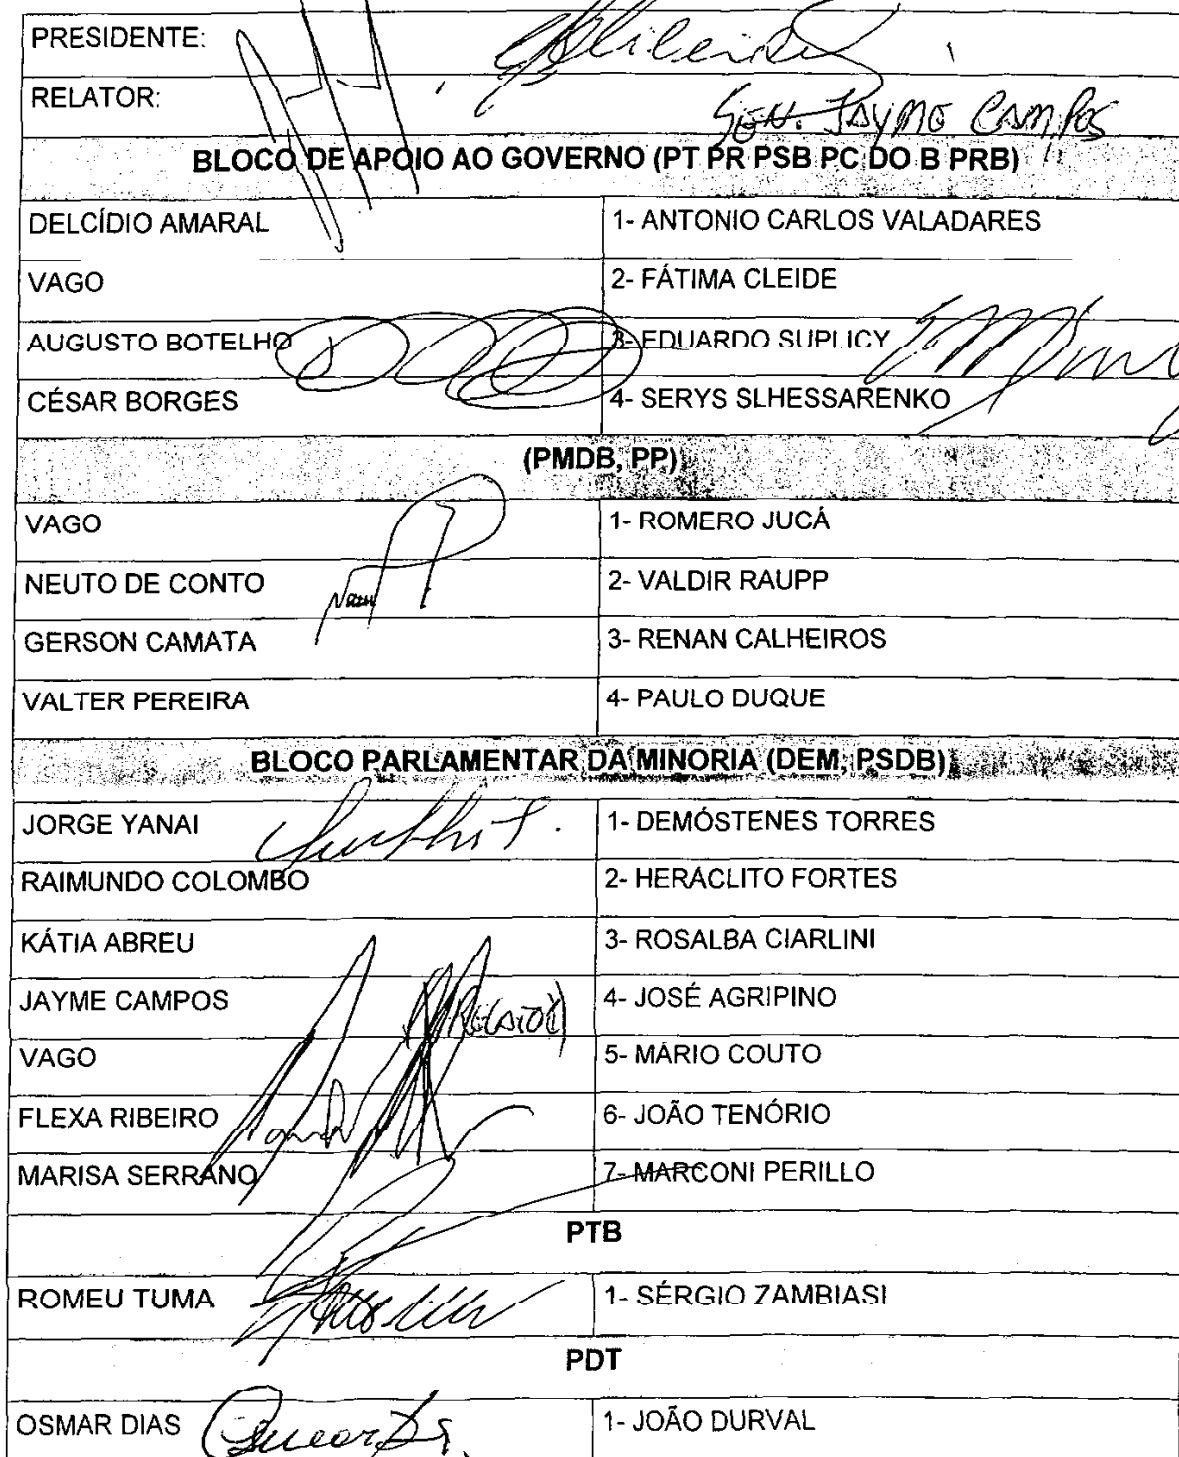 PRESIDENTE:
RELATOR:
SEN. JAYME CAMPOS
BLOCO DE APOIO AO GOVERNO (PT PR PSB PC DO B PRB)
DELCÍDIO AMARAL 1- ANTONIO CARLOS VALADARES
VAGO 2- FÁTIMA CLEIDE
AUGUSTO BOTELHO 3- EDUARDO SUPLICY
CÉSAR BORGES 4- SERYS SLHESSARENKO
(PMDB, PP)
VAGO 1- ROMERO JUCÁ
NEUTO DE CONTO 2- VALDIR RAUPP
GERSON CAMATA 3- RENAN CALHEIROS
VALTER PEREIRA 4- PAULO DUQUE
BLOCO PARLAMENTAR DA MINORIA (DEM, PSDB)
JORGE YANAI 1- DEMÓSTENES TORRES
RAIMUNDO COLOMBO 2- HERÁCLITO FORTES
KÁTIA ABREU 3- ROSALBA CIARLINI
JAYME CAMPOS (RELATOR) 4- JOSÉ AGRIPINO
VAGO 5- MÁRIO COUTO
FLEXA RIBEIRO 6- JOÃO TENÓRIO
MARISA SERRANO 7- MARCONI PERILLO
PTB
ROMEU TUMA 1- SÉRGIO ZAMBIASI
PDT
OSMAR DIAS 1- JOÃO DURVAL